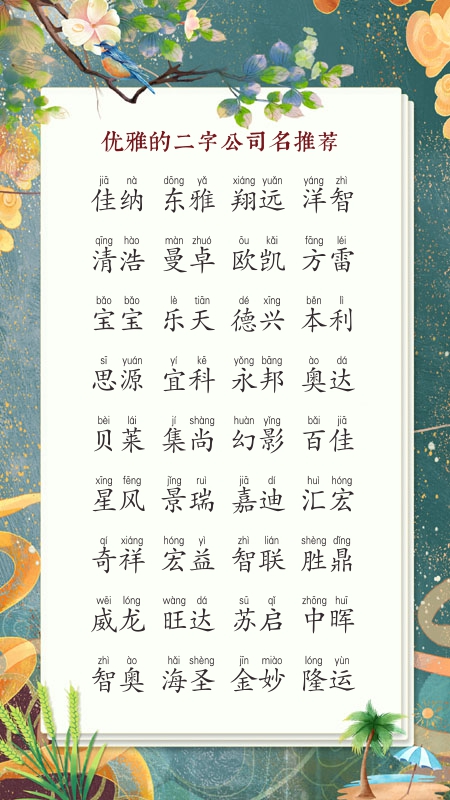 优雅的二字公司名推荐
jiā nà dōng yǎ xiáng yuǎn yáng zhì
佳纳 东雅 翔远 洋智
qīng hào màn zhuó ōu kǎi fāng léi
清浩 曼卓 欧凯 方雷
bǎo bǎo lè tiān dé xīng běn lì
宝宝 乐天 德兴 本利
sī yuán yí kē yǒng bāng ào dá
思源 宜科 永邦 奥达
bèi lái jí shàng huàn yǐng bǎi jiā
贝莱 集尚 幻影 百佳
xīng fēng jǐng ruì jiā dí huì hóng
星风 景瑞 嘉迪 汇宏
qí xiáng hóng yì zhì lián shèng dǐng
奇祥 宏益 智联 胜鼎
wēi lóng wàng dá sū qǐ zhōng huī
威龙 旺达 苏启 中晖
zhì ào hǎi shèng jīn miào lóng yùn
智奥 海圣 金妙 隆运